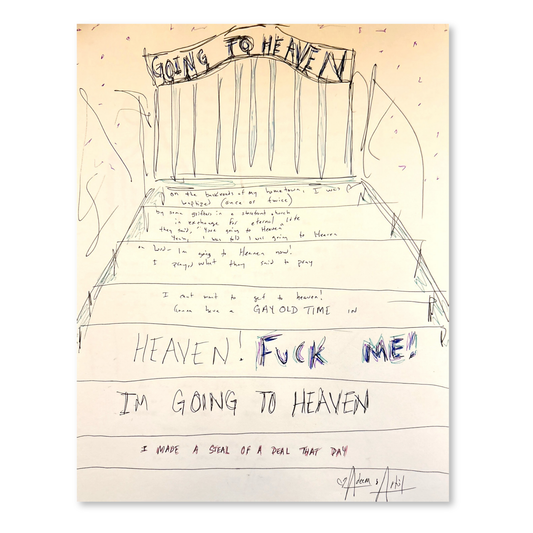 GOING TO HEAVEN
on the backroads of my hometown, I was
baptized (once or twice)
by some in a church
in exchange for eternal life
they said, "You're going to Heaven"
I was told I was going to Heaven
oh Lord- I'm going to Heaven now!
I prayed what they said to pray
I cant wait to get to heaven!
Gonna have a GAY OLD TIME in
HEAVEN! FUCK ME!!
IM GOING TO HEAVEN
I MADE A STEAL OF A DEAL THAT DAY